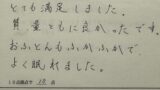 とても満足しました。
質、量ともに良かったです。
おふとんもふかふかで
よく眠れました。